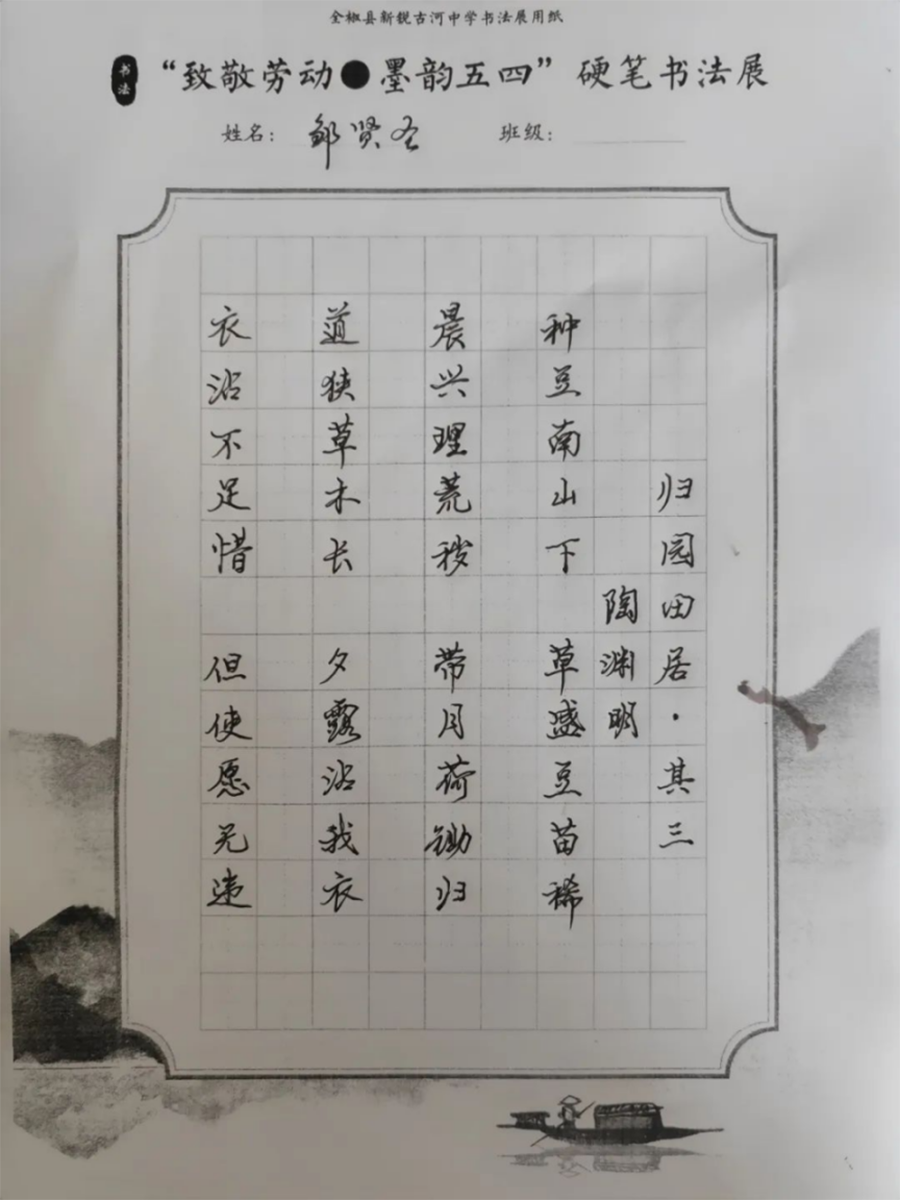 全椒县新锐古河中学书法展用纸
书法
“致敬劳动●墨韵五四”硬笔书法展
姓名：邹贤圣
班级：
归园田居·其三
陶渊明
种豆南山下 草盛豆苗稀
晨兴理荒秽 带月荷锄归
道狭草木长 夕露沾我衣
衣沾不足惜 但使愿无违